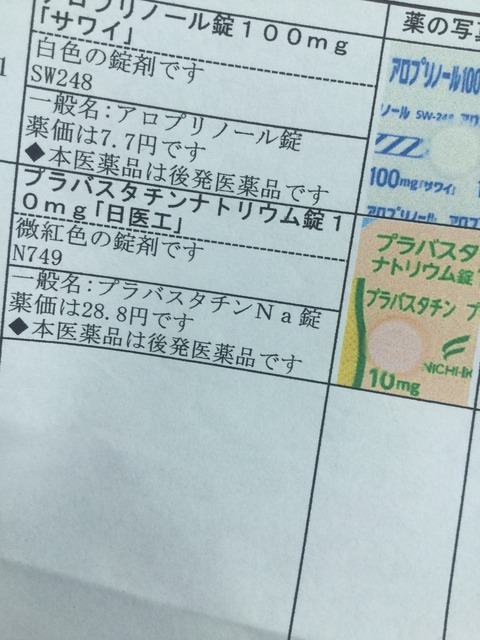 アロプリノール錠100mg
「サワイ」
白色の錠剤です
SW248
一般名:アロプリノール錠
薬価は7.7円です
◆本医薬品は後発医薬品です
プラバスタチンナトリウム錠1
0mg「日医工」
微紅色の錠剤です
N749
一般名:プラバスタチンNa錠
薬価は28.8円です
◆本医薬品は後発医薬品です
1
薬の写真
アロプリノール100
ノール SW-248 アロ
100mg「サワイ」
アロプリノール アロプ
プラバスタ
ナトリウム錠
プラバスタチン プ
NICHI-IK
10mg